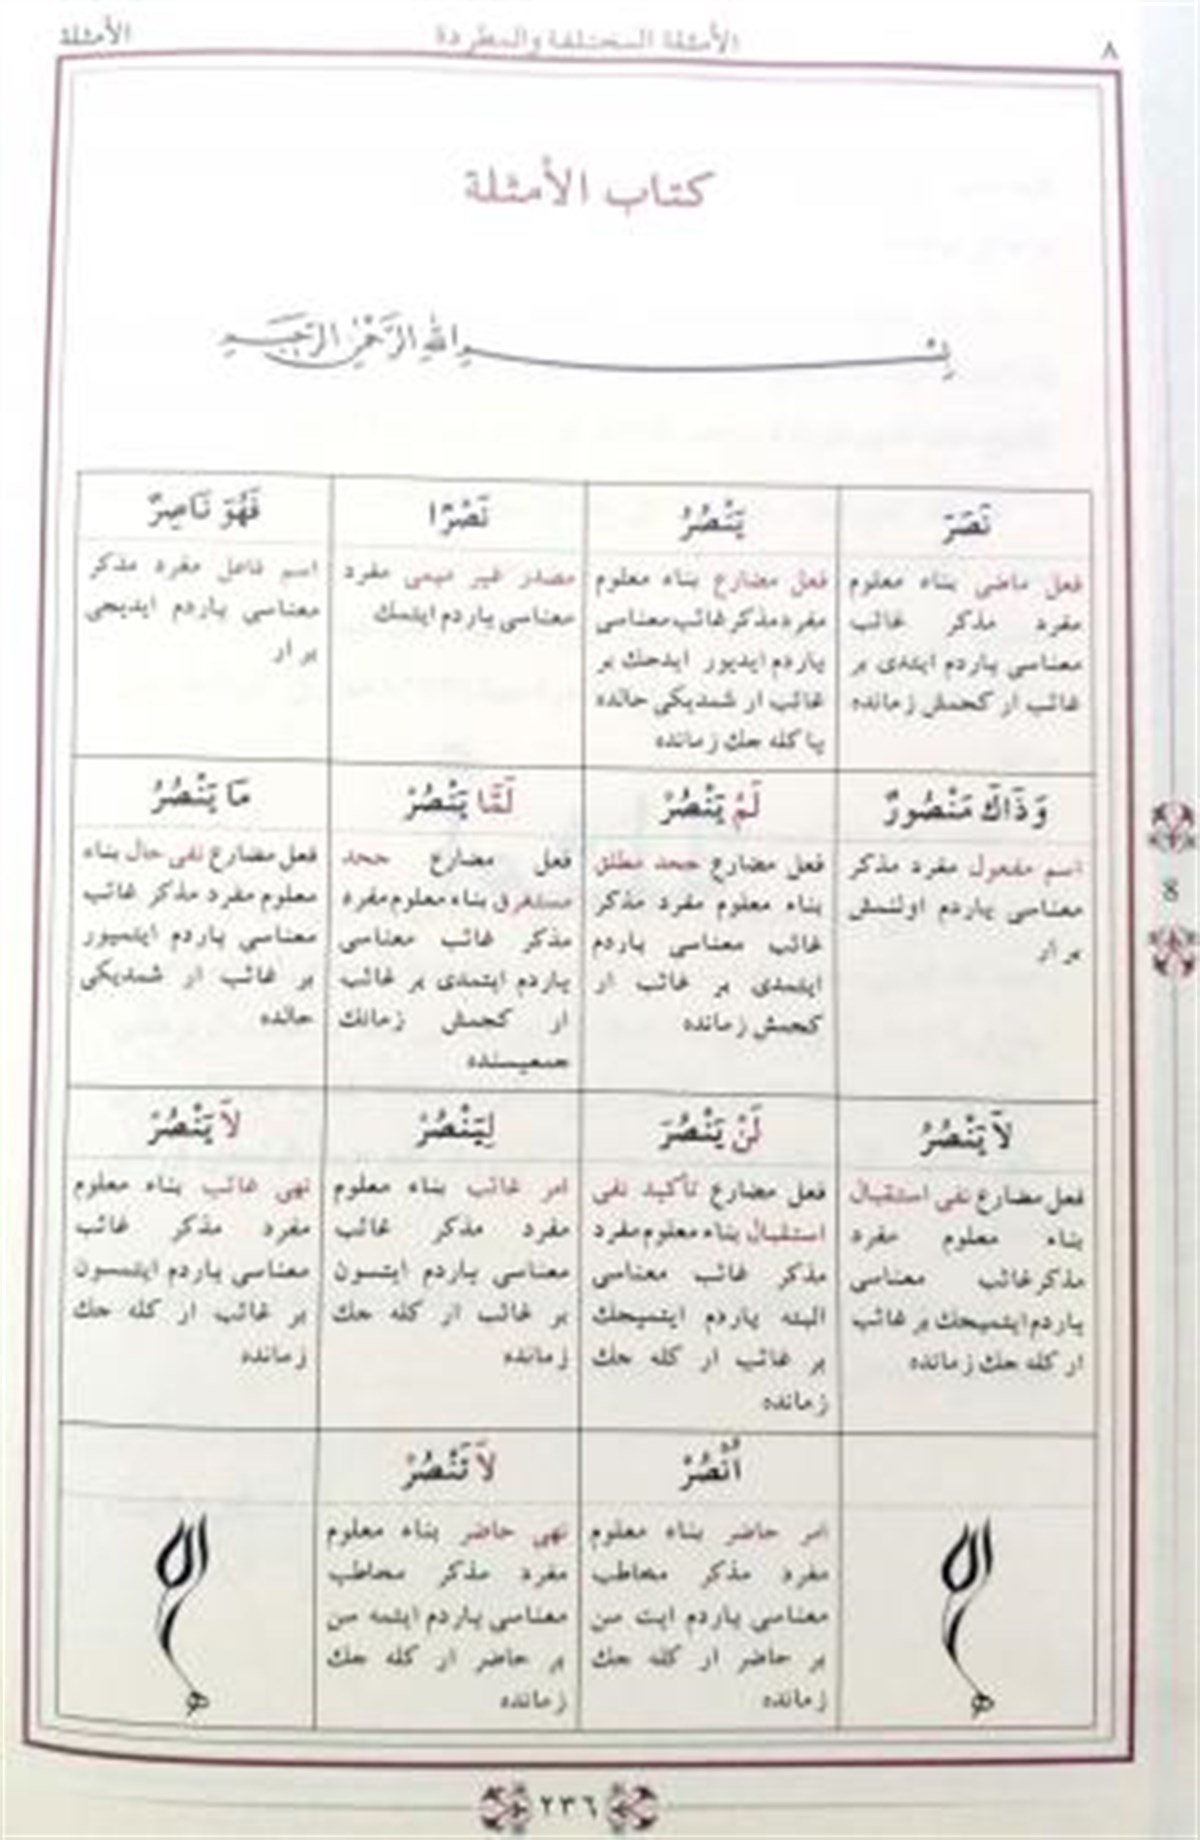 ٨
الأمثلة المختلفة والمطردة
الأمثلة
كتاب الأمثلة
بسم الله الرَّحْمٰنِ الرَّحِيمِ
نَصَرَ
فعل ماضى بناء معلوم
مفرد مذكر غائب
معناسى ياردم ايتدى بر
غائب ار كجمش زمانده
يَنْصُرُ
فعل مضارع بناء معلوم
مفرد مذكر غائب معناسى
ياردم ايديور ايدجك بر
غائب ار شمديكى حالده
يا كله جك زمانده
نَصْرًا
مصدر غير ميمى مفرد
معناسى ياردم ايتمك
فَهُوَ نَاصِرٌ
اسم فاعل مفرد مذكر
معناسى ياردم ايديجى
بر ار
وَذَاكَ مَنْصُورٌ
اسم مفعول مفرد مذكر
معناسى ياردم اولنمش
بر ار
لَمْ يَنْصُرْ
فعل مضارع جحد مطلق
بناء معلوم مفرد مذكر
غائب معناسى ياردم
ايتمدى بر غائب ار
كجمش زمانده
لَمَّا يَنْصُرْ
فعل مضارع جحد
مستغرق بناء معلوم مفرد
مذكر غائب معناسى
ياردم ايتمدى بر غائب
ار كجمش زمانك
جميعسنده
مَا يَنْصُرُ
فعل مضارع نفى حال بناء
معلوم مفرد مذكر غائب
معناسى ياردم ايتميور
بر غائب ار شمديكى
حالده
لاَ يَنْصُرُ
فعل مضارع نفى استقبال
بناء معلوم مفرد
مذكر غائب معناسى
ياردم ايتميجك بر غائب
ار كله جك زمانده
لَنْ يَنْصُرَ
فعل مضارع تأكيد نفى
استقبال بناء معلوم مفرد
مذكر غائب معناسى
البته ياردم ايتميجك
بر غائب ار كله جك
زمانده
لِيَنْصُرْ
امر غائب بناء معلوم
مفرد مذكر غائب
معناسى ياردم ايتسون
بر غائب ار كله جك
زمانده
لاَ يَنْصُرْ
نهى غائب بناء معلوم
مفرد مذكر غائب
معناسى ياردم ايتمسون
بر غائب ار كله جك
زمانده
اُنْصُرْ
امر حاضر بناء معلوم
مفرد مذكر مخاطب
معناسى ياردم ايت سن
بر حاضر ار كله جك
زمانده
لاَ تَنْصُرْ
نهى حاضر بناء معلوم
مفرد مذكر مخاطب
معناسى ياردم ايتمه سن
بر حاضر ار كله جك
زمانده
8
٢٣٦